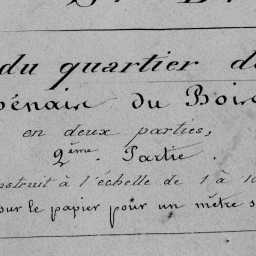 du quartier d
pénair du Bois
en deux parties,
2ème. Partie.
nstruit à l'échelle de 1 à 10
sur le papier pour un mètre s